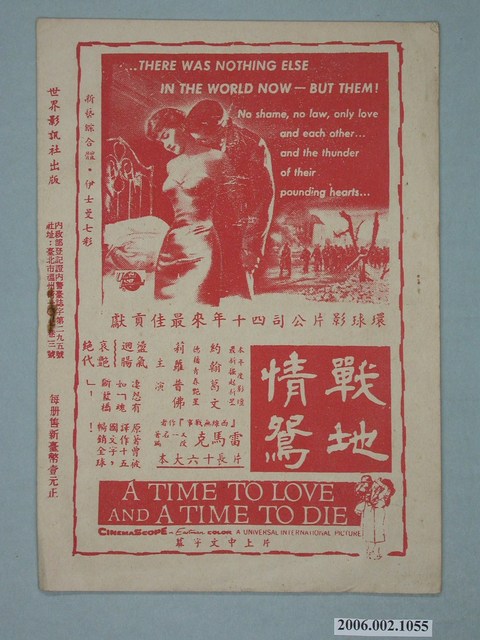 ...THERE WAS NOTHING ELSE
IN THE WORLD NOW — BUT THEM!
No shame, no law, only love
and each other...
and the thunder
of their
pounding hearts...
新藝綜合體·伊士曼七彩
世界影訊社出版
內政部登記證內警臺誌字第二九五號
每册售新臺幣壹元正
環球影片公司四十年來最佳貢獻
戰地
情鴛
本年度影壇
約翰葛文
德國青春艷星
莉蘿普佛
主演
盪氣
迴腸
哀艷
絕代
「西線無戰事」作者
雷馬克
片長十六大本
A TIME TO LOVE
AND A TIME TO DIE
CINEMASCOPE — Eastman COLOR A UNIVERSAL INTERNATIONAL PICTURE
片上中文字幕
2006.002.1055